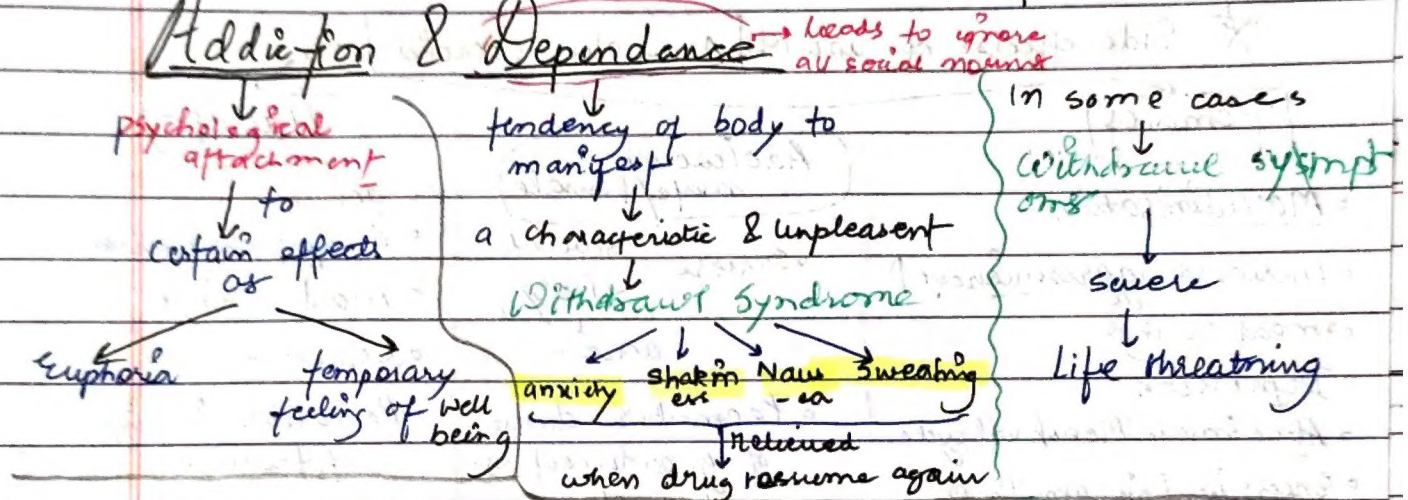 Addiction & Dependance → Leads to ignore
all social norms
psychological
attachment
to
certain effects
as
Euphoria
temporary
feeling of well
being
tendency of body to
manifest
a characteristic & unpleasent
Withdrawl Syndrome
anxiety shakin Naus Sweating
ess -ea
Relieved
when drug resume again
In some cases
Withdrawl sympt
oms
severe
Life threatning